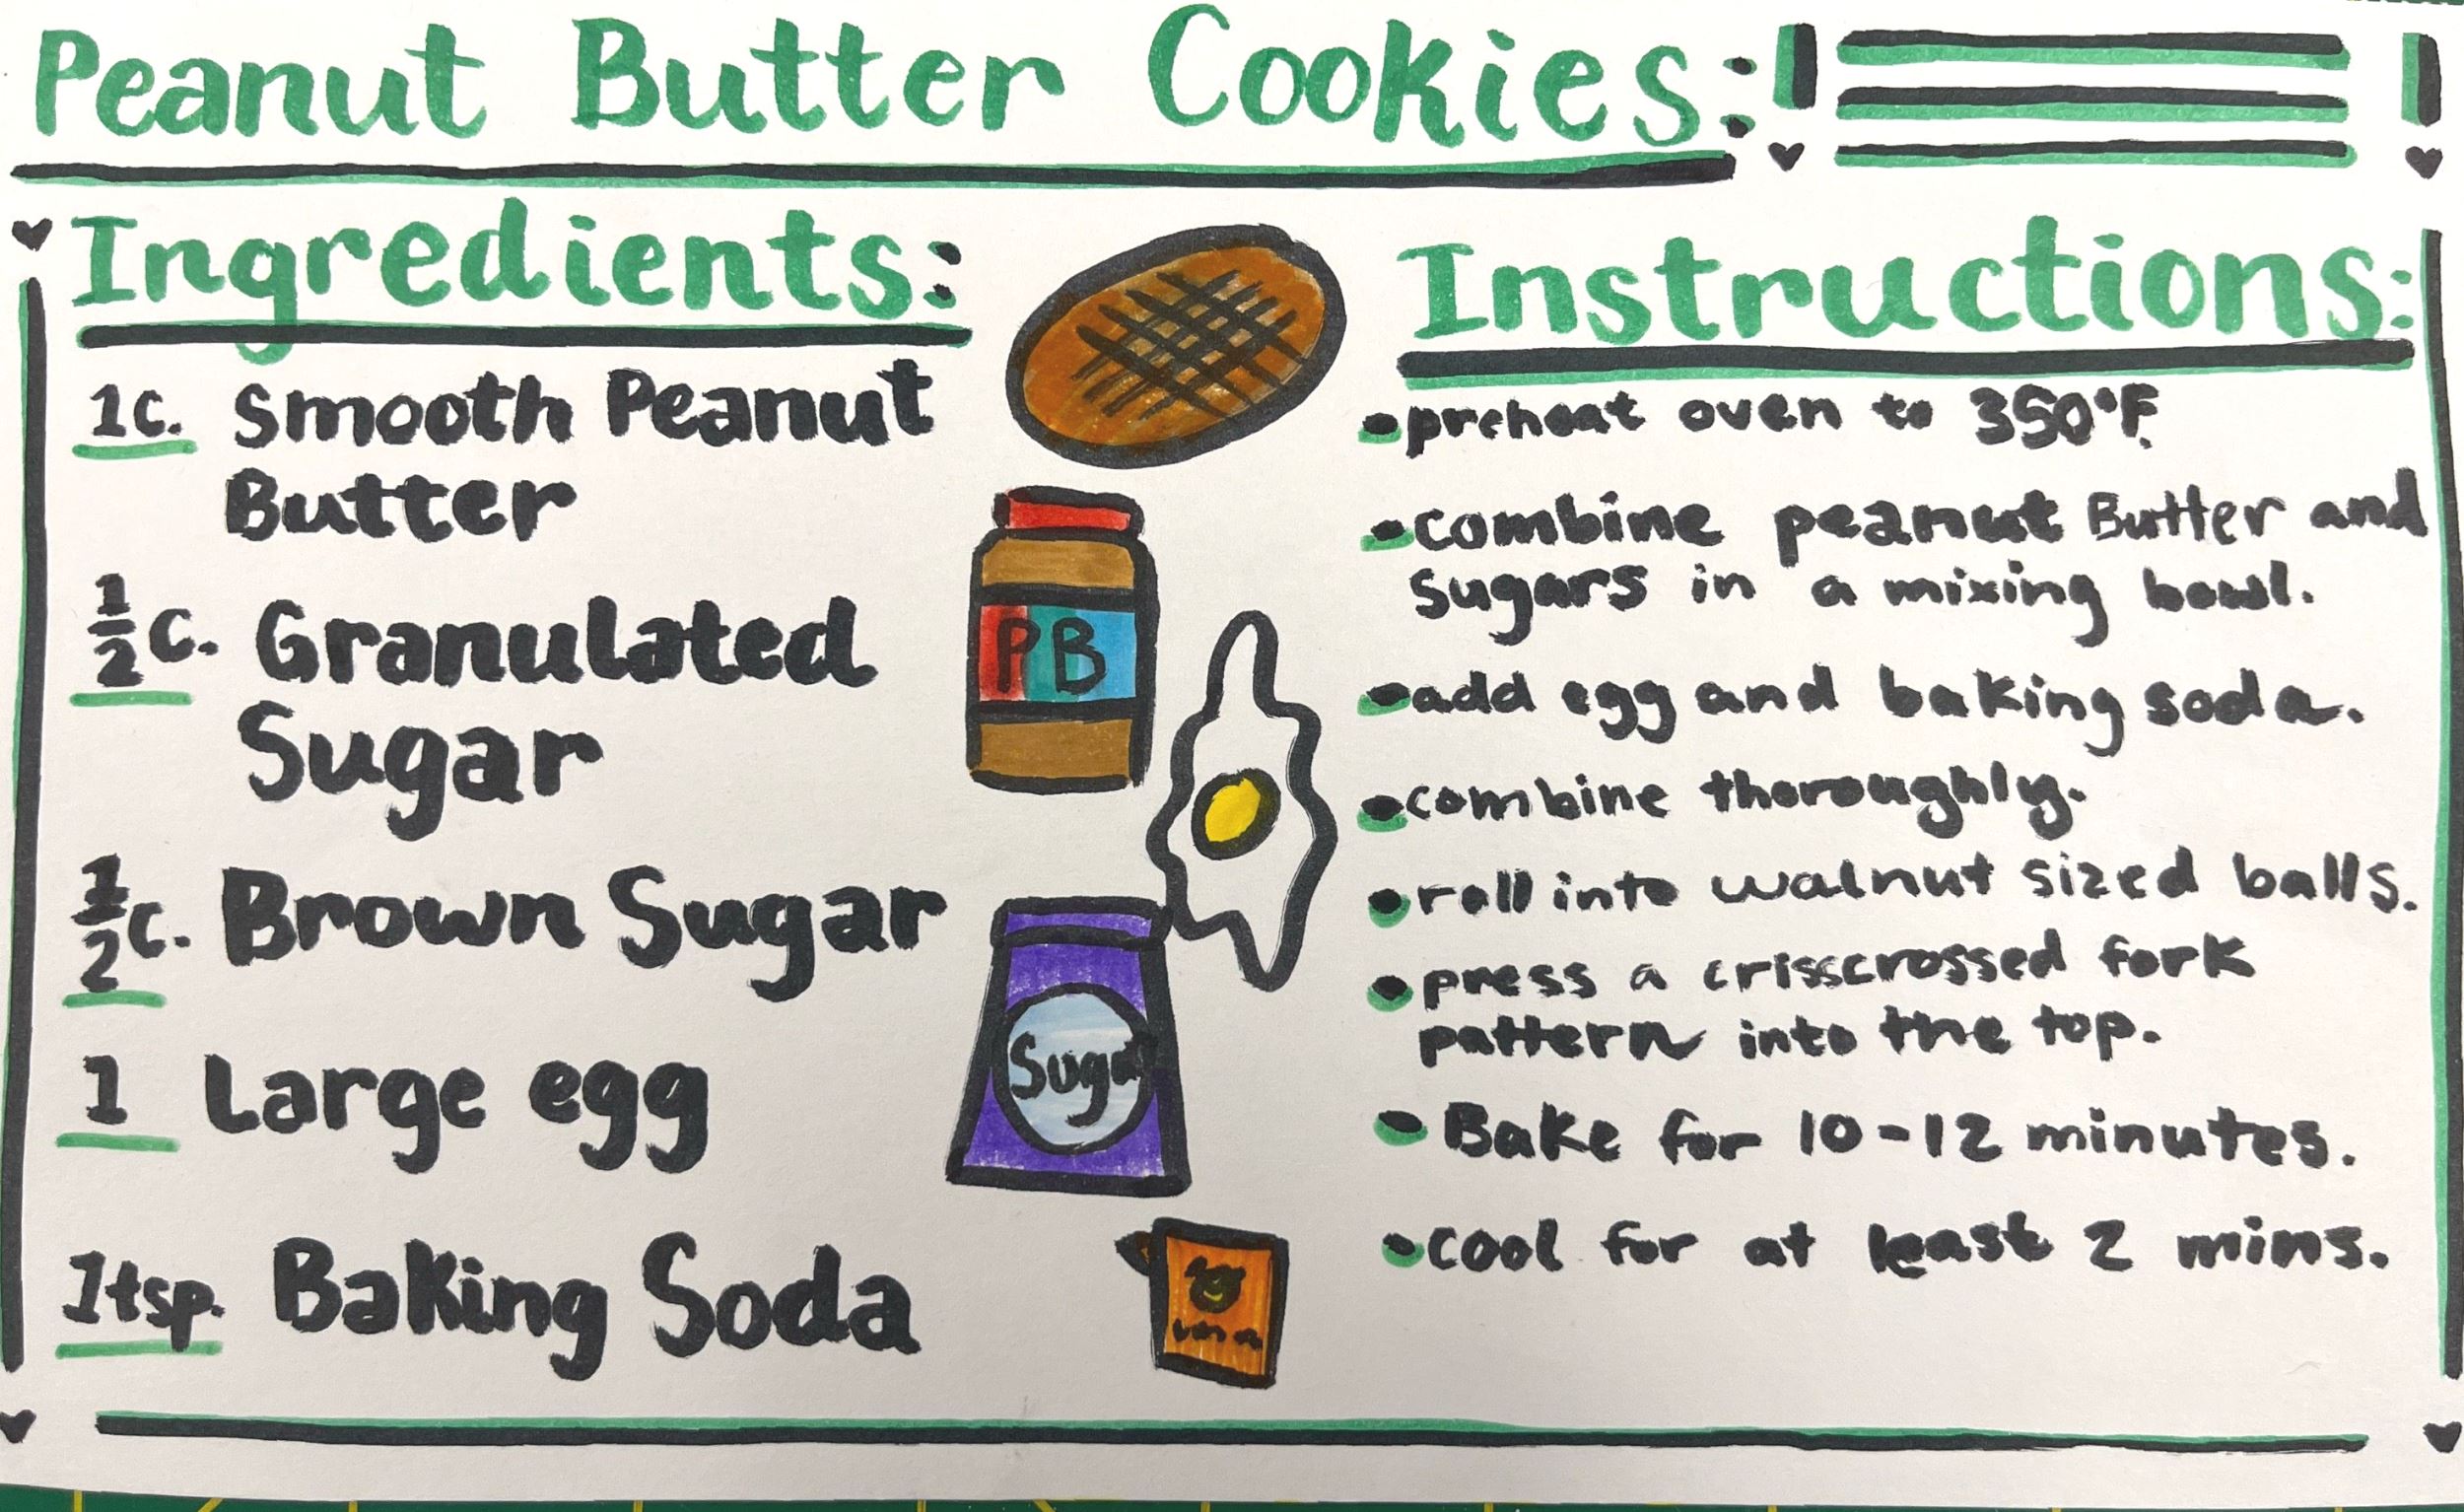 Peanut Butter Cookies:
Ingredients:
1c. Smooth Peanut
Butter
1/2 c. Granulated
Sugar
1/2 c. Brown Sugar
1 Large egg
1tsp. Baking Soda
PB
Sugar
Instructions:
•preheat oven to 350°F.
•combine peanut Butter and
sugars in a mixing bowl.
•add egg and baking soda.
•combine thoroughly.
•roll into walnut sized balls.
•press a crisscrossed fork
pattern into the top.
•Bake for 10-12 minutes.
•cool for at least 2 mins.